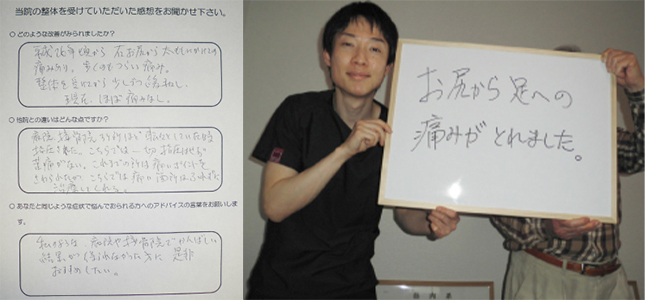 当院の整体を受けていただいた感想をお聞かせ下さい。
○ どのような改善がみられましたか？
平成26年頃から 右お尻から太ももにかけての
痛みあり、歩くのもつらい痛み。
整体を受けてから少しずつ
現在、ほぼ痛みなし。
○ 当院との違いはどんな点ですか？
病院、接骨院
こちらでは一切
苦痛がない。これまでの所は痛い
こちらでは痛い箇所は
治療してくれる。
○ あなたと同じような症状で悩んでおられる方へのアドバイスの言葉をお願いしま
す。
私のような 病院や接骨院でかんばしい
結果が得られなかった方に 是非
おすすめしたい。
お尻から足への
痛みがとれました。